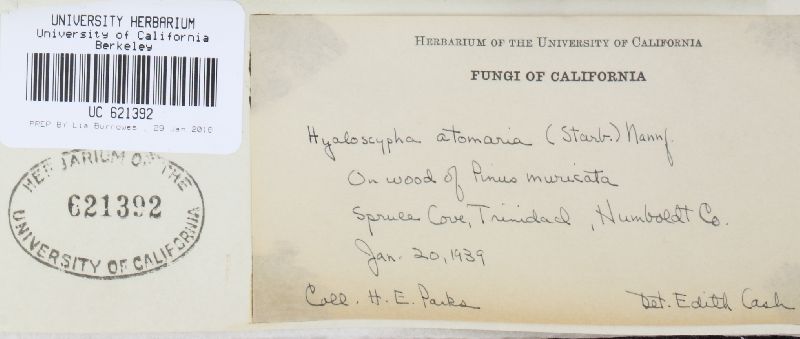 UNIVERSITY HERBARIUM
University of California
Berkeley
UC 621392
PREP BY Lia Burrowes, 29 Jan 2016
HERBARIUM OF THE
621392
UNIVERSITY OF CALIFORNIA
HERBARIUM OF THE UNIVERSITY OF CALIFORNIA
FUNGI OF CALIFORNIA
Hyaloscypha atomaria (Starb.) Nannf.
On wood of Pinus muricata
Spruce Cove, Trinidad, Humboldt Co.
Jan. 20, 1939
Coll. H. E. Parks
Det. Edith Cash